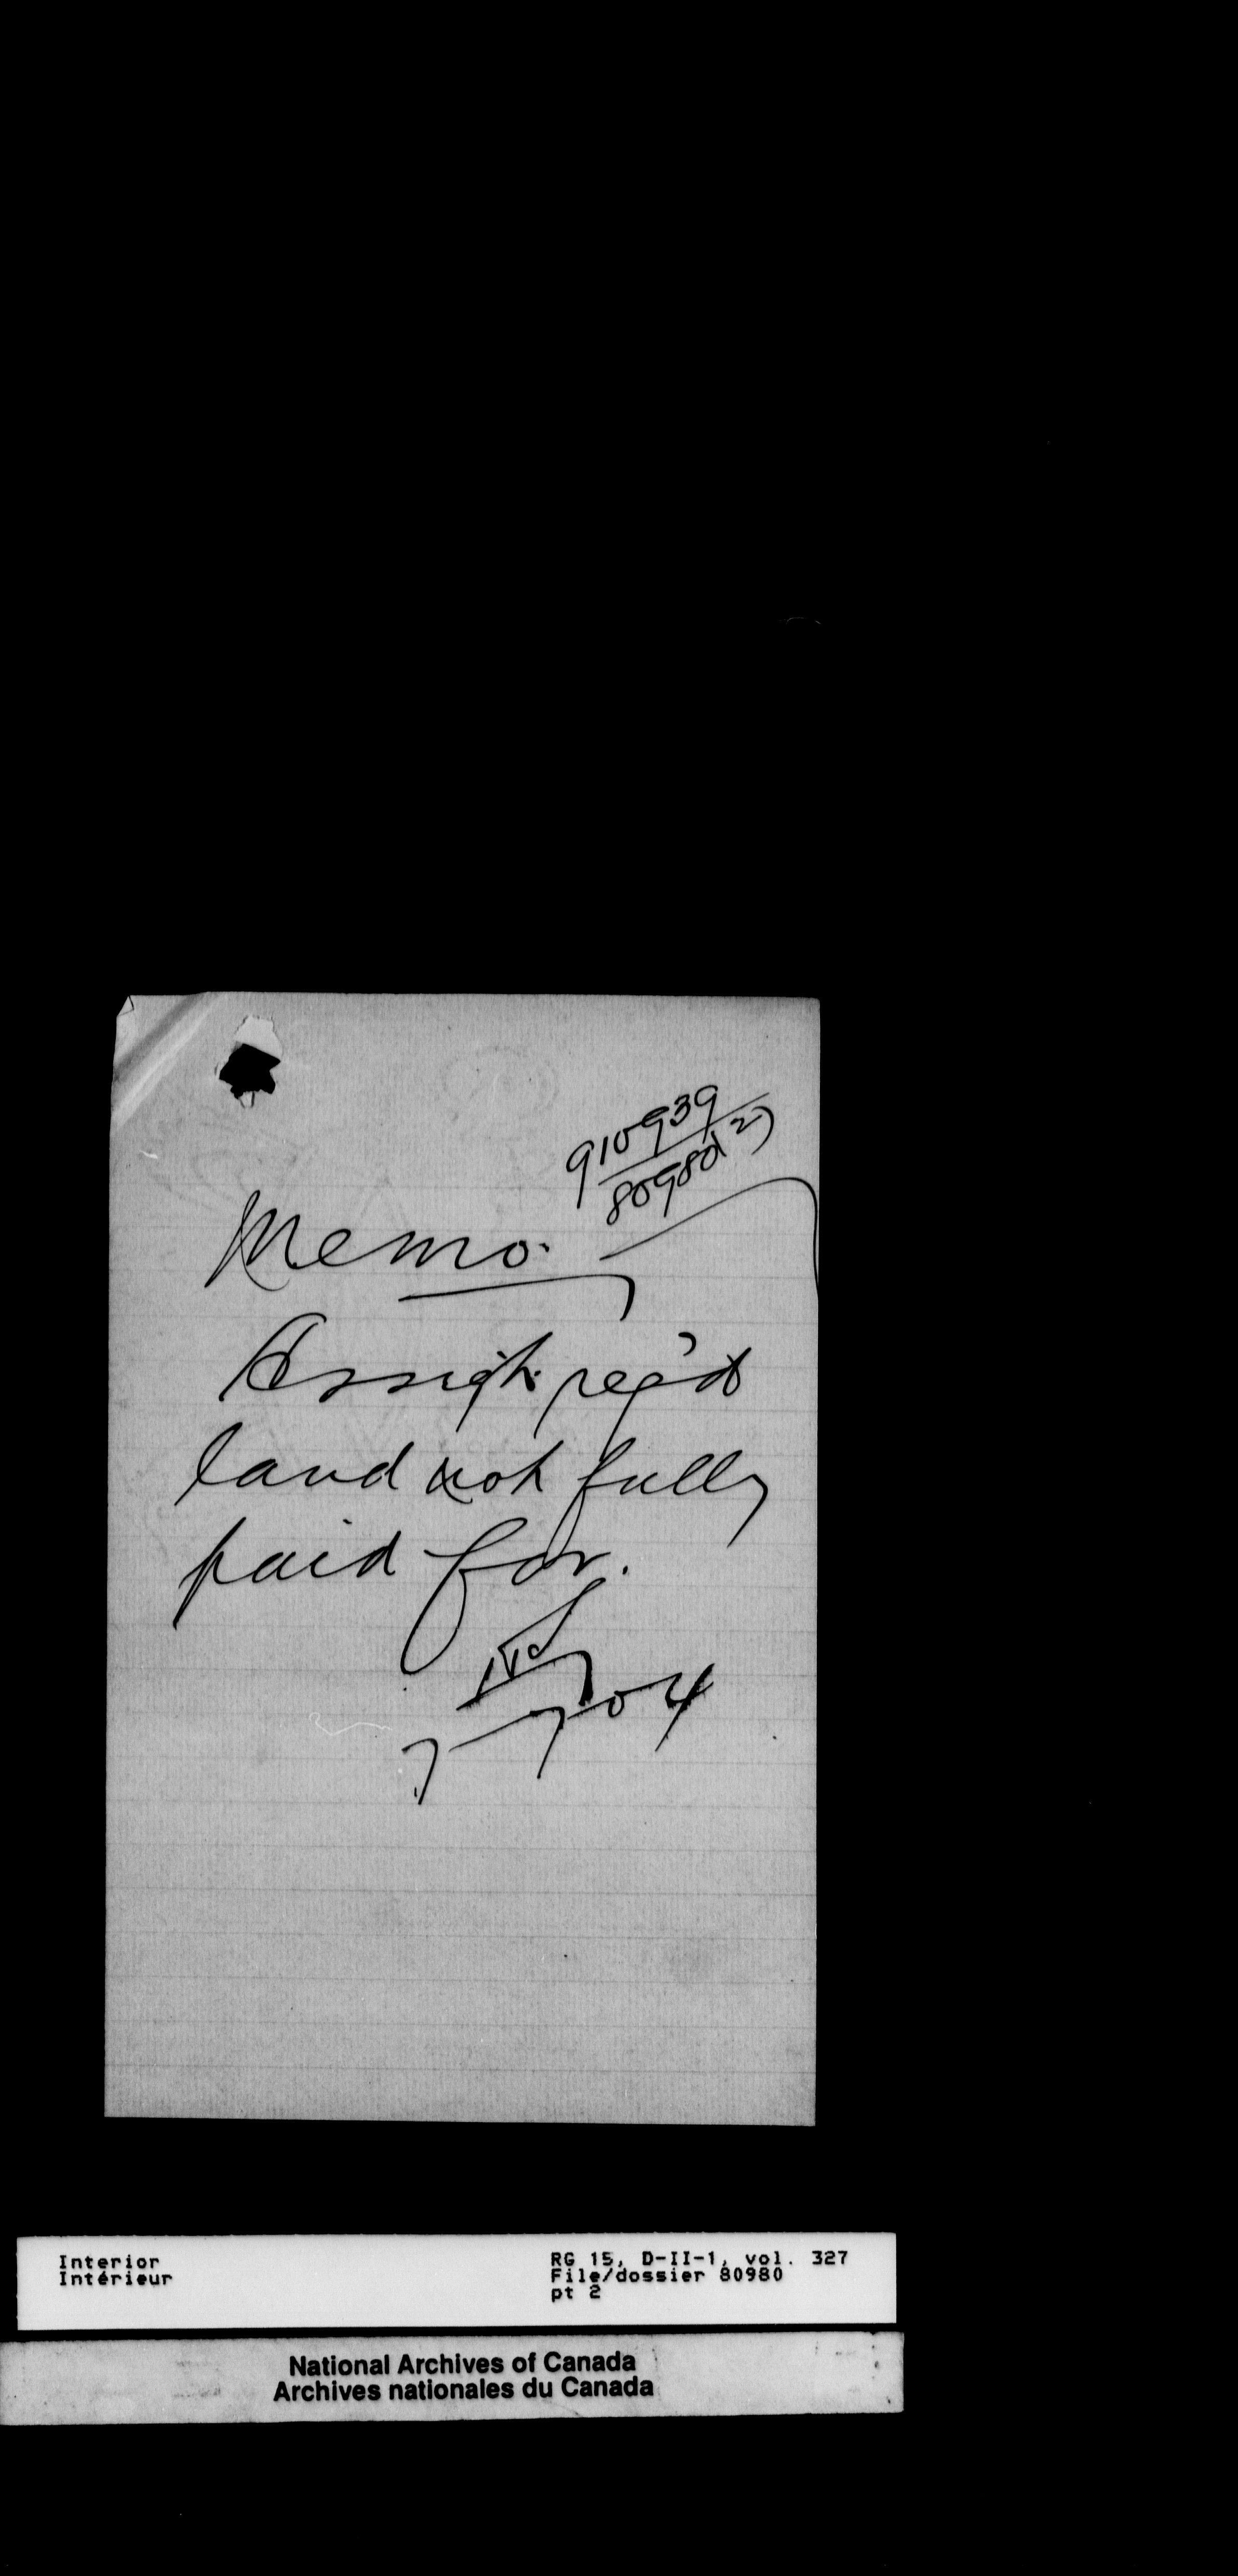 910939
80980 (2)
Memo.
Assigt. reg'd
land not fully
paid for.
7-7-04
Interior
Intérieur
RG 15, D-II-1, vol. 327
File/dossier 80980
pt 2
National Archives of Canada
Archives nationales du Canada